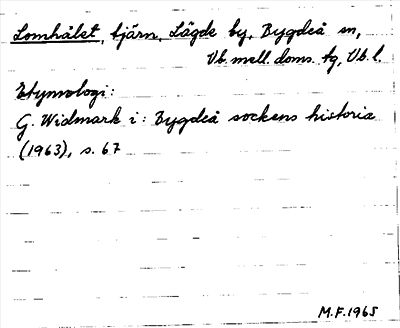 Lomhålet, tjärn, Lägde by, Bygdeå sn,
Vb. mell. doms. tg, Vb. l.
Etymologi:
G. Widmark i: Bygdeå sockens historia
(1963), s. 67
M.F. 1965